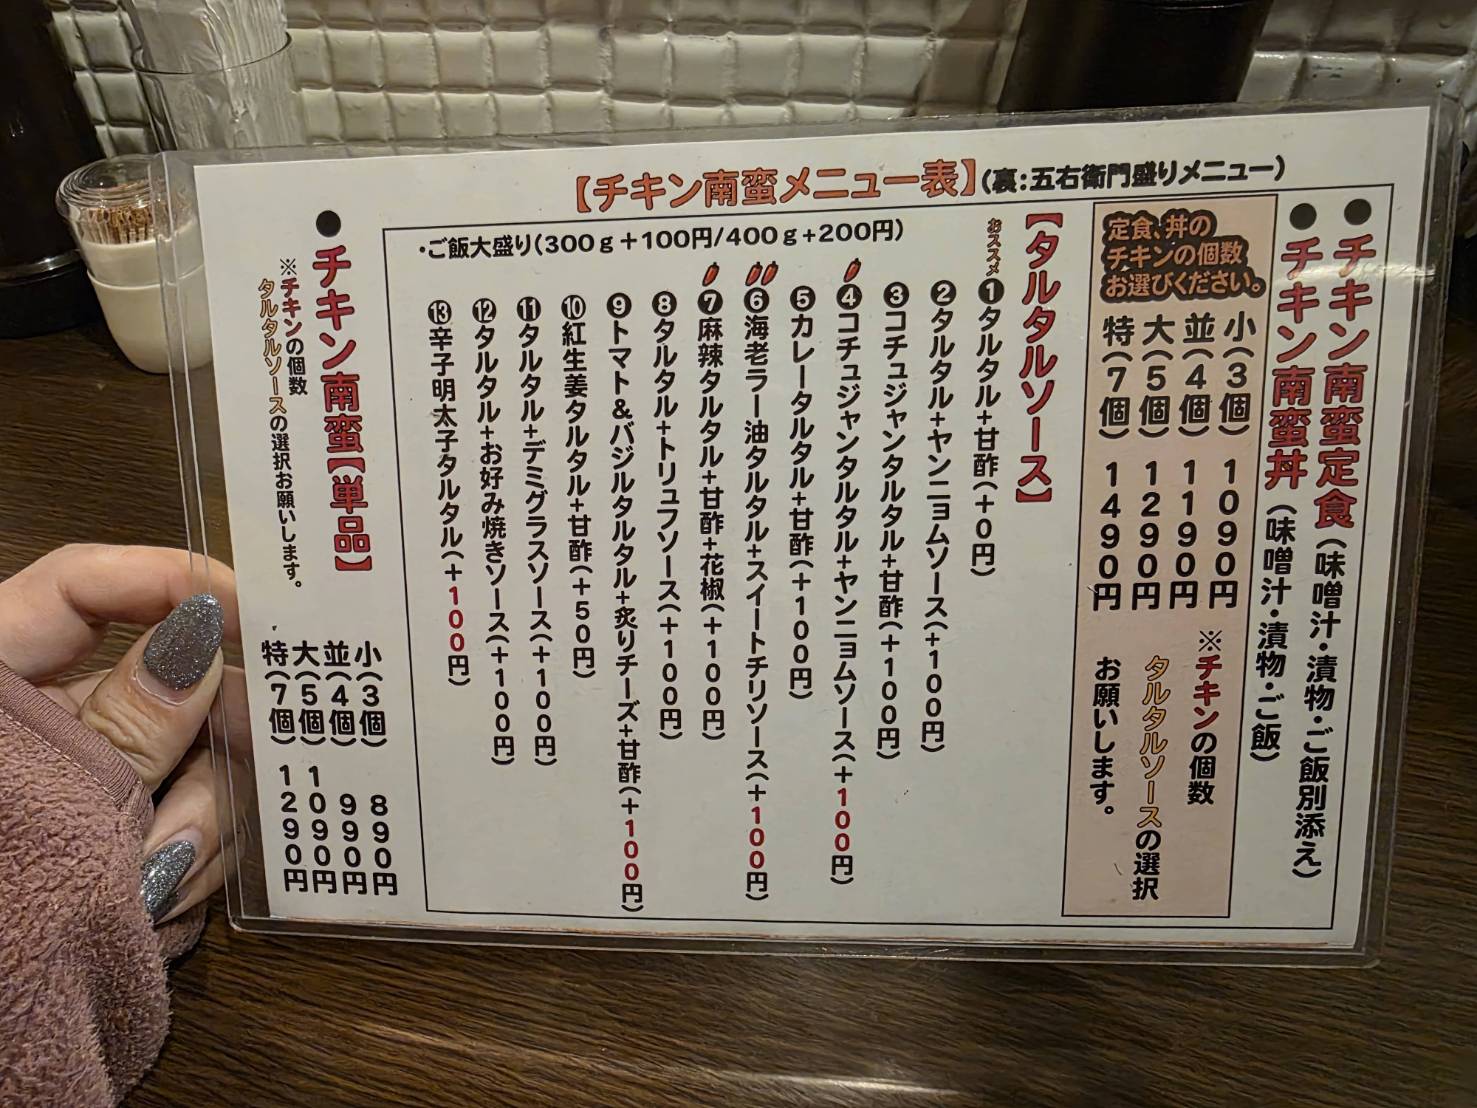 【チキン南蛮メニュー表】(裏:五右衛門盛りメニュー)
●チキン南蛮定食(味噌汁・漬物・ご飯別添え)
●チキン南蛮丼(味噌汁・漬物・ご飯)
定食、丼の
チキンの個数
お選びください。
小(3個) 1090円
並(4個) 1190円
大(5個) 1290円
特(7個) 1490円
※チキンの個数
タルタルソースの選択
お願いします。
【タルタルソース】
・ご飯大盛り(300g+100円/400g+200円)
おススメ
❶タルタル+甘酢(+0円)
❷タルタル+ヤンニョムソース(+100円)
❸コチュジャンタルタル+甘酢(+100円)
❹コチュジャンタルタル+ヤンニョムソース(+100円)
❺カレータルタル+甘酢(+100円)
❻海老ラー油タルタル+スイートチリソース(+100円)
❼麻辣タルタル+甘酢+花椒(+100円)
❽タルタル+トリュフソース(+100円)
❾トマト&バジルタルタル+炙りチーズ+甘酢(+100円)
❿紅生姜タルタル+甘酢(+50円)
⓫タルタル+デミグラスソース(+100円)
⓬タルタル+お好み焼きソース(+100円)
⓭辛子明太子タルタル(+100円)
●チキン南蛮【単品】
※チキンの個数
タルタルソースの選択お願いします。
小(3個) 890円
並(4個) 990円
大(5個) 1090円
特(7個) 1290円